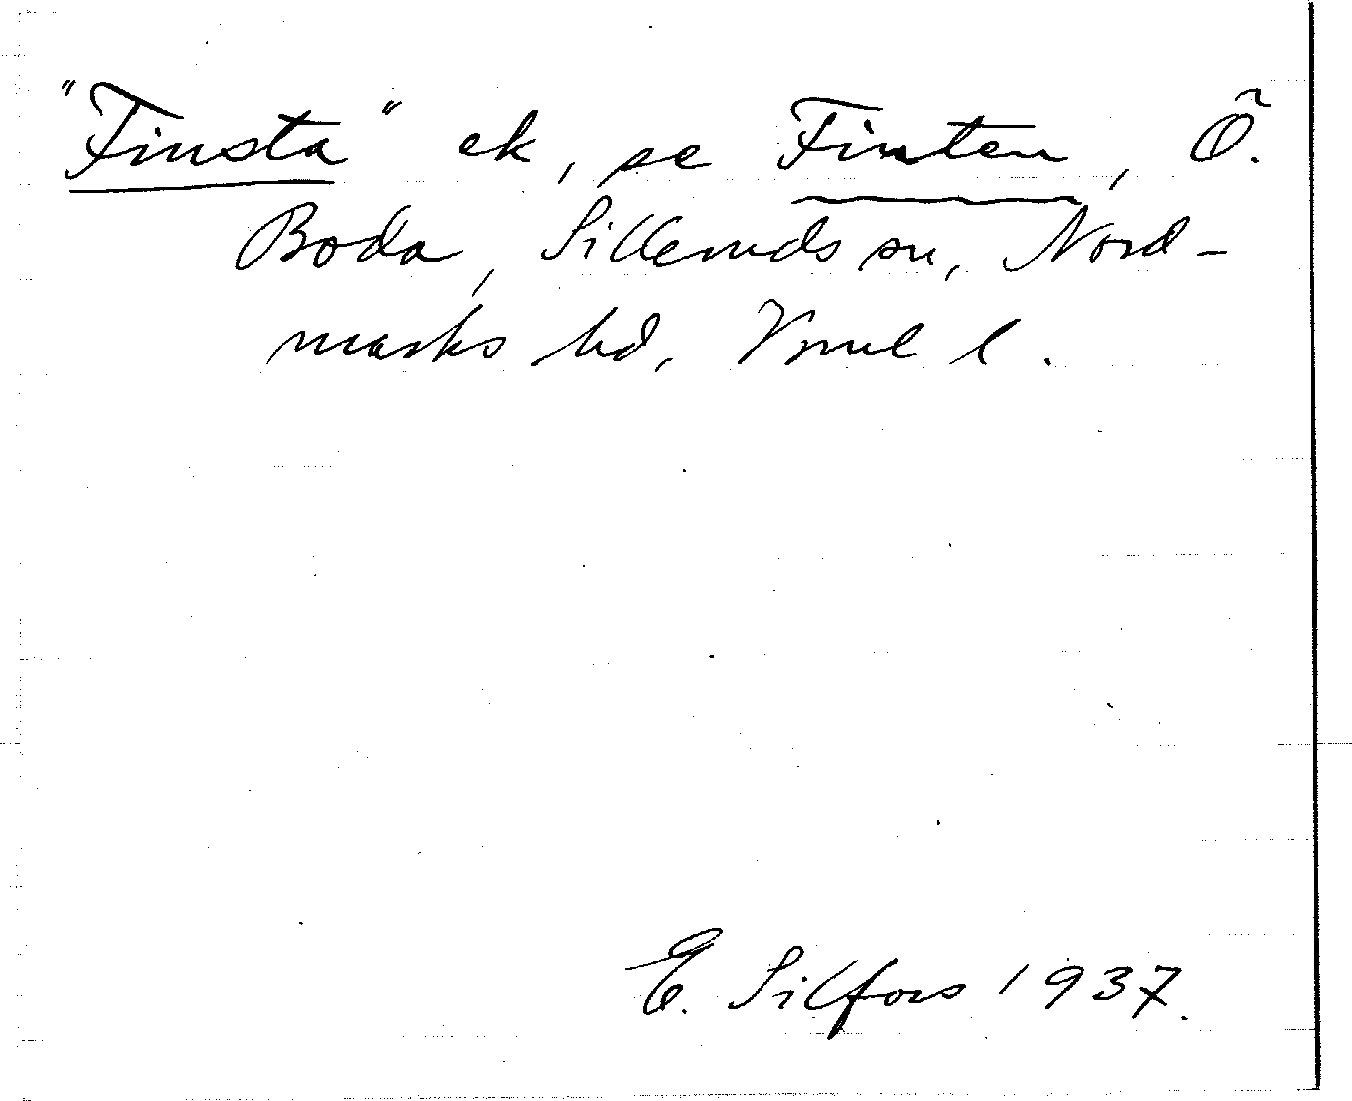 "Finsta" ek, se Finten, Ö.
Boda, Silleruds sn, Nord-
marks hd, Vrml l.
E. Silfors 1937.